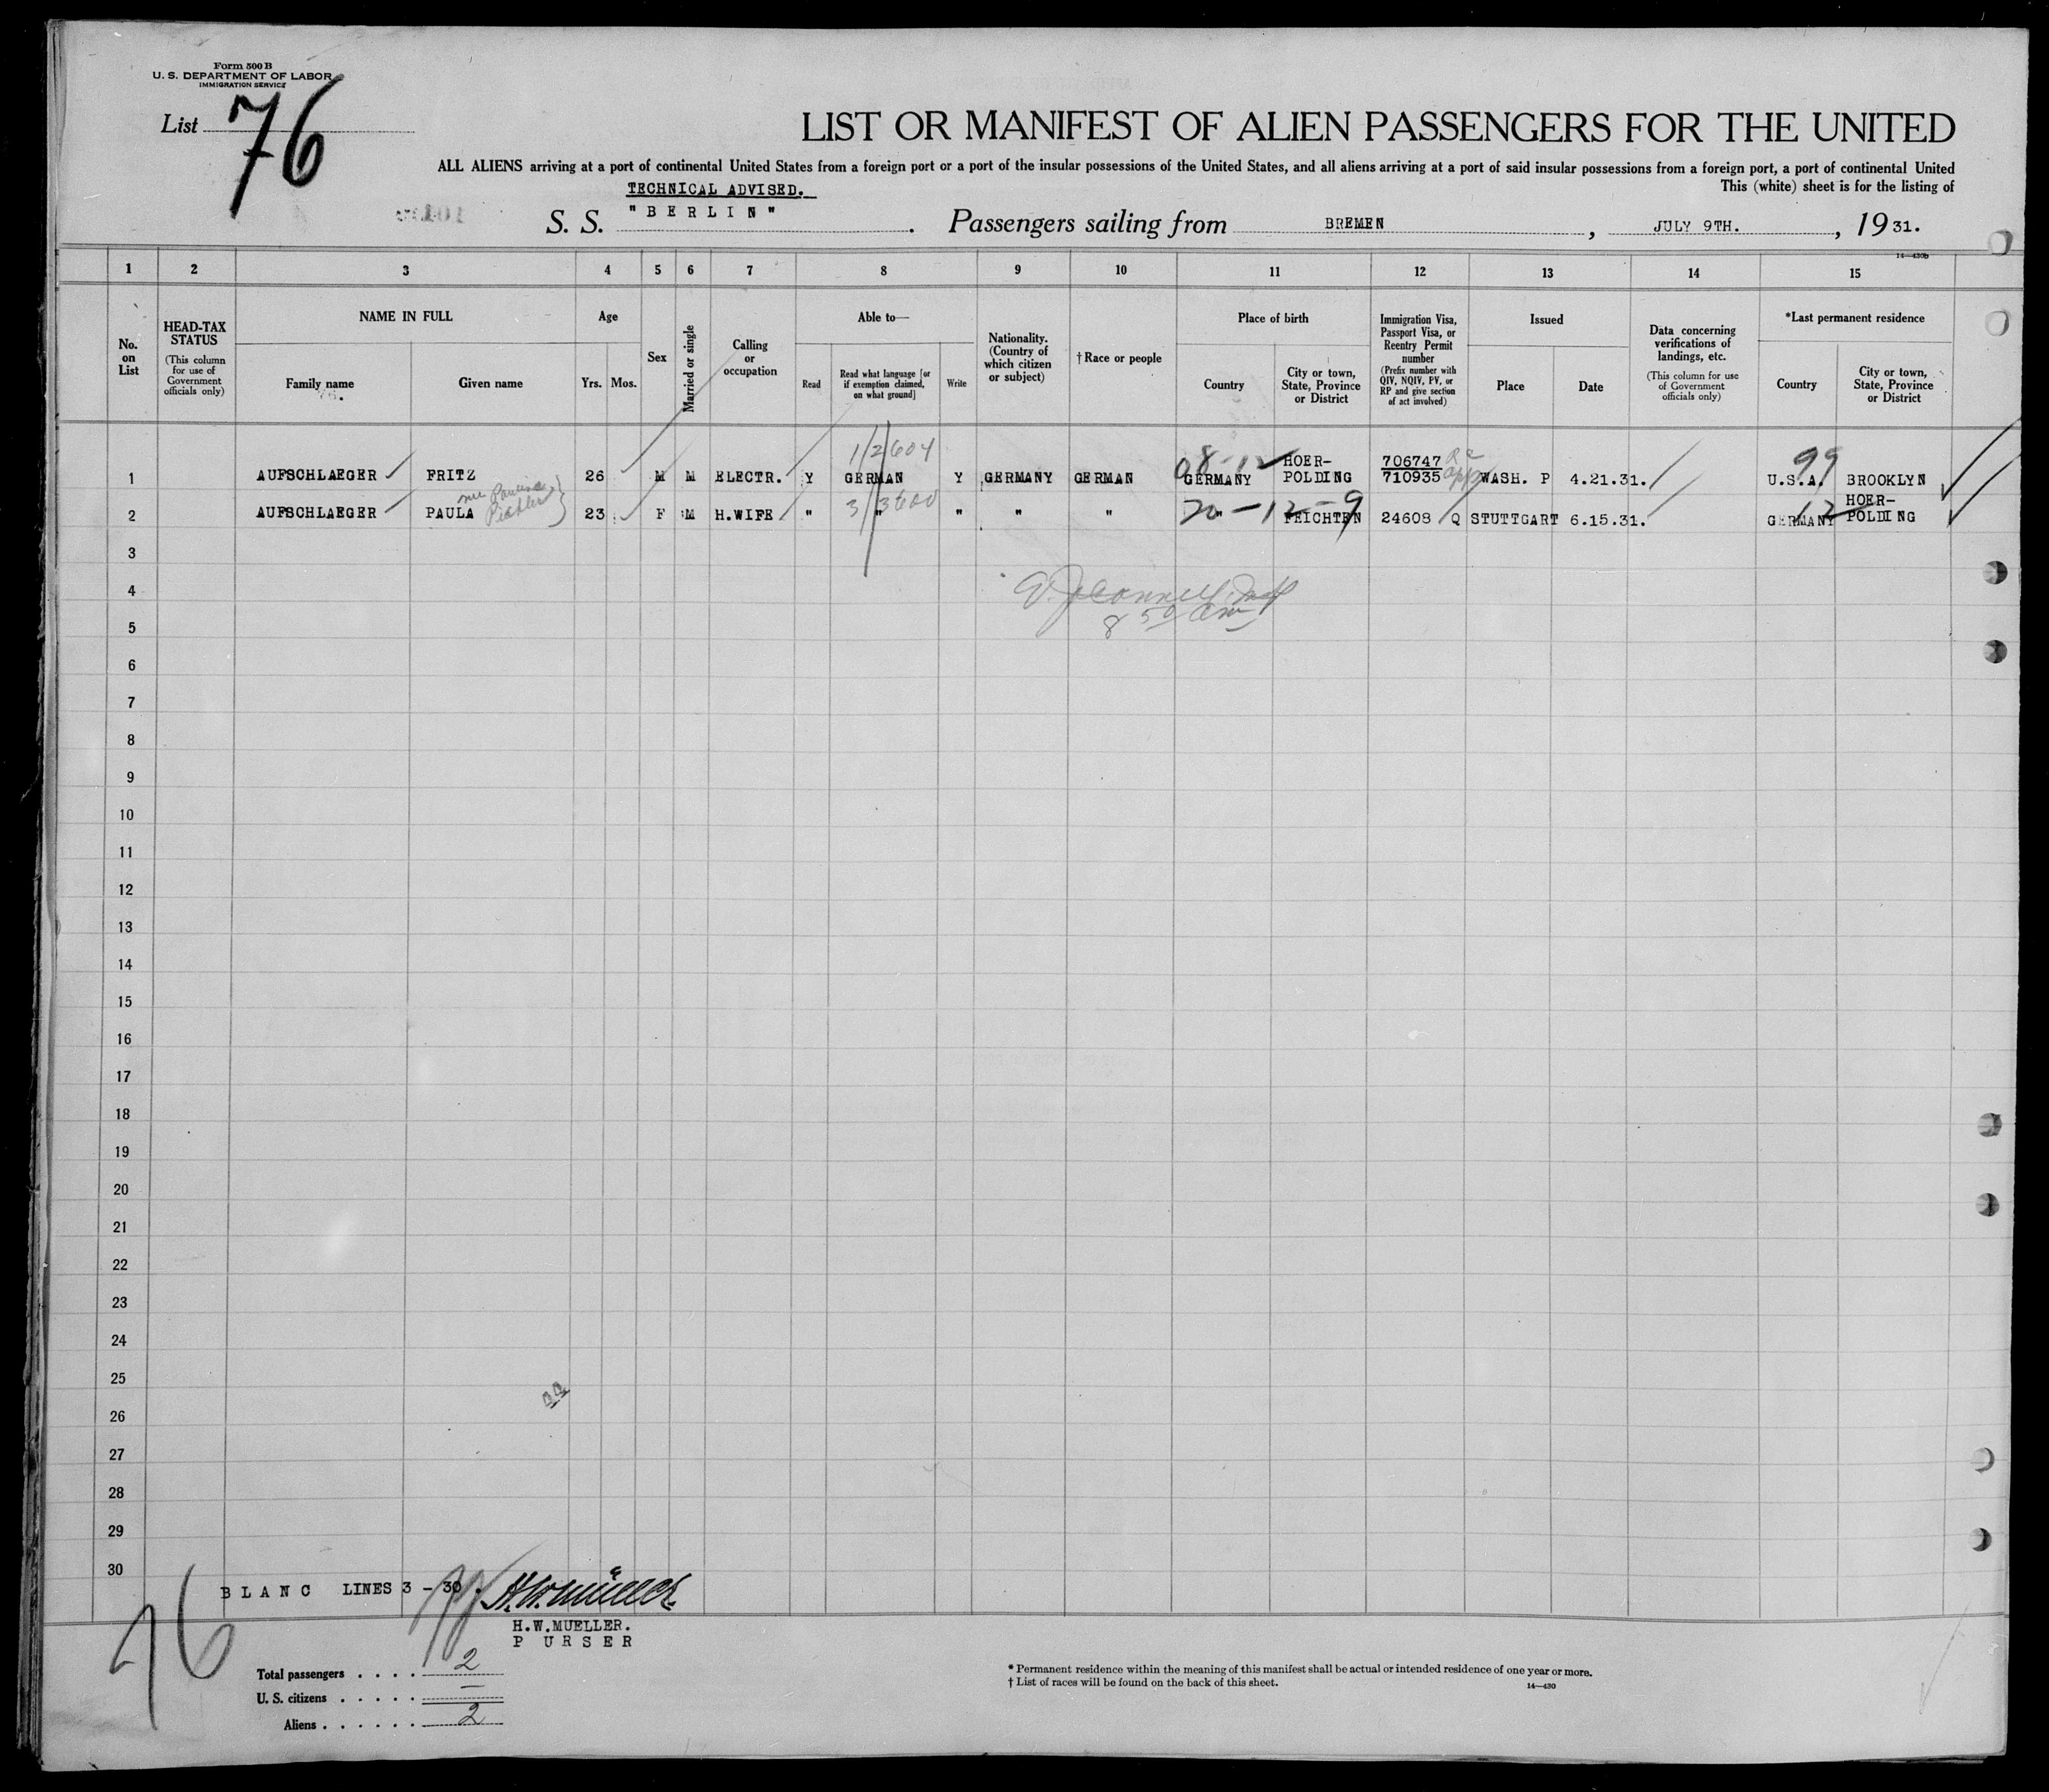 Form 500 B
U. S. DEPARTMENT OF LABOR
IMMIGRATION SERVICE
List 76
LIST OR MANIFEST OF ALIEN PASSENGERS FOR THE UNITED
ALL ALIENS arriving at a port of continental United States from a foreign port or a port of the insular possessions of the United States, and all aliens arriving at a port of said insular possessions from a foreign port, a port of continental United
TECHNICAL ADVISED. This (white) sheet is for the listing of
S. S. "BERLIN". Passengers sailing from BREMEN, JULY 9TH., 1931.
14—430b
1 2 3 4 5 6 7 8 9 10 11 12 13 14 15
No. on List
HEAD-TAX STATUS
(This column for use of Government officials only)
NAME IN FULL
Family name
Given name
Age
Yrs. Mos.
Sex
Married or single
Calling or occupation
Able to—
Read
Read what language [or if exemption claimed, on what ground]
Write
Nationality. (Country of which citizen or subject)
†Race or people
Place of birth
Country
City or town, State, Province or District
Immigration Visa, Passport Visa, or Reentry Permit number
(Prefix number with QIV, NQIV, PV, or RP and give section of act involved)
Issued
Place
Date
Data concerning verifications of landings, etc.
(This column for use of Government officials only)
*Last permanent residence
Country
City or town, State, Province or District
1 AUFSCHLAEGER FRITZ 26 M M ELECTR. Y GERMAN Y GERMANY GERMAN GERMANY HOER-POLDING 706747 710935 WASH. P 4.21.31. 99 U.S.A. BROOKLYN
2 AUFSCHLAEGER PAULA 23 F M H.WIFE " " " " " " FEICHTEN 24608 Q STUTTGART 6.15.31. 12 GERMANY HOER-POLDING
3
4
5
8 50 am
6
7
8
9
10
11
12
13
14
15
16
17
18
19
20
21
22
23
24
25
26
27
28
29
30
BLANC LINES 3 - 30.
H.W. Müller
H.W.MUELLER.
PURSER
76
Total passengers . . . . 2
U. S. citizens . . . . . —
Aliens . . . . . . 2
* Permanent residence within the meaning of this manifest shall be actual or intended residence of one year or more.
† List of races will be found on the back of this sheet.
14—430